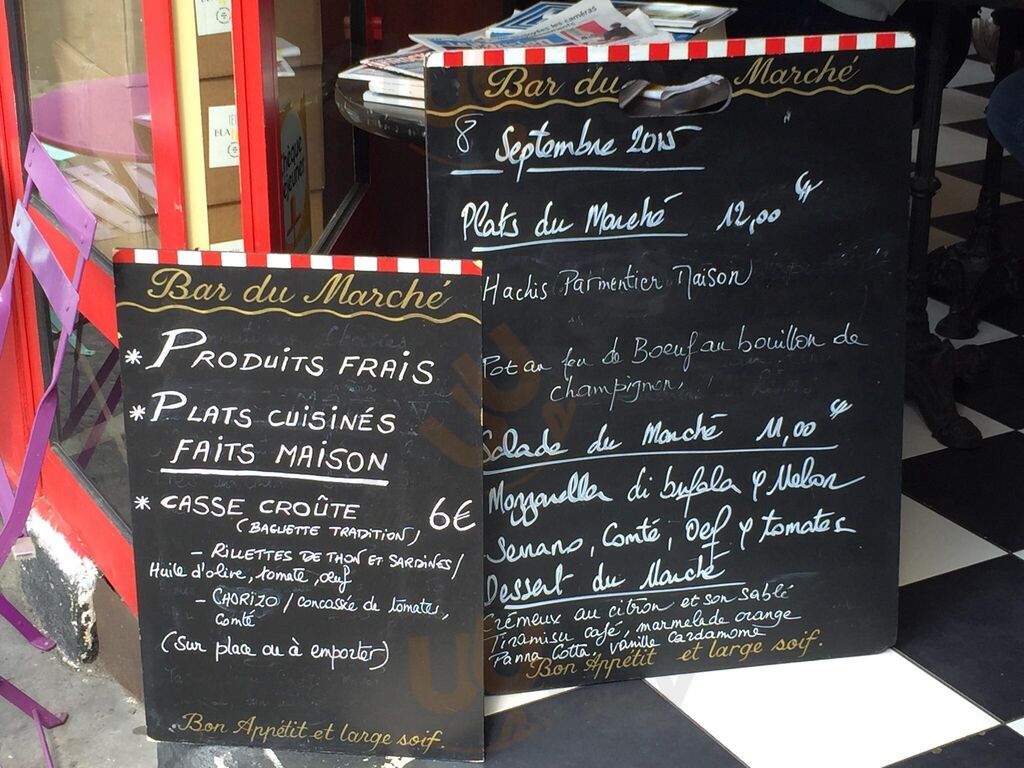 Bar du Marché
* PRODUITS FRAIS
* PLATS CUISINÉS
FAITS MAISON
* CASSE CROÛTE 6€
(BAGUETTE TRADITION)
- RILLETTES DE THON ET SARDINES/
Huile d'olive, tomate, œuf
- CHORIZO / concassée de tomates,
comté
(Sur place ou à emporter)
Bon Appétit et large soif.
Bar du Marché
8 Septembre 2015
Plats du Marché 12,00 €
Hachis Parmentier Maison
Pot au feu de Boeuf au bouillon de
champignon,
Salade du Marché 11,00 €
Mozzarella di bufala & Melon
Serrano, Comté, Oef & tomates
Dessert du Marché
Crémeux au citron et son sablé
Tiramisu café, marmelade orange
Panna Cotta, vanille cardamome
Bon Appétit et large soif.